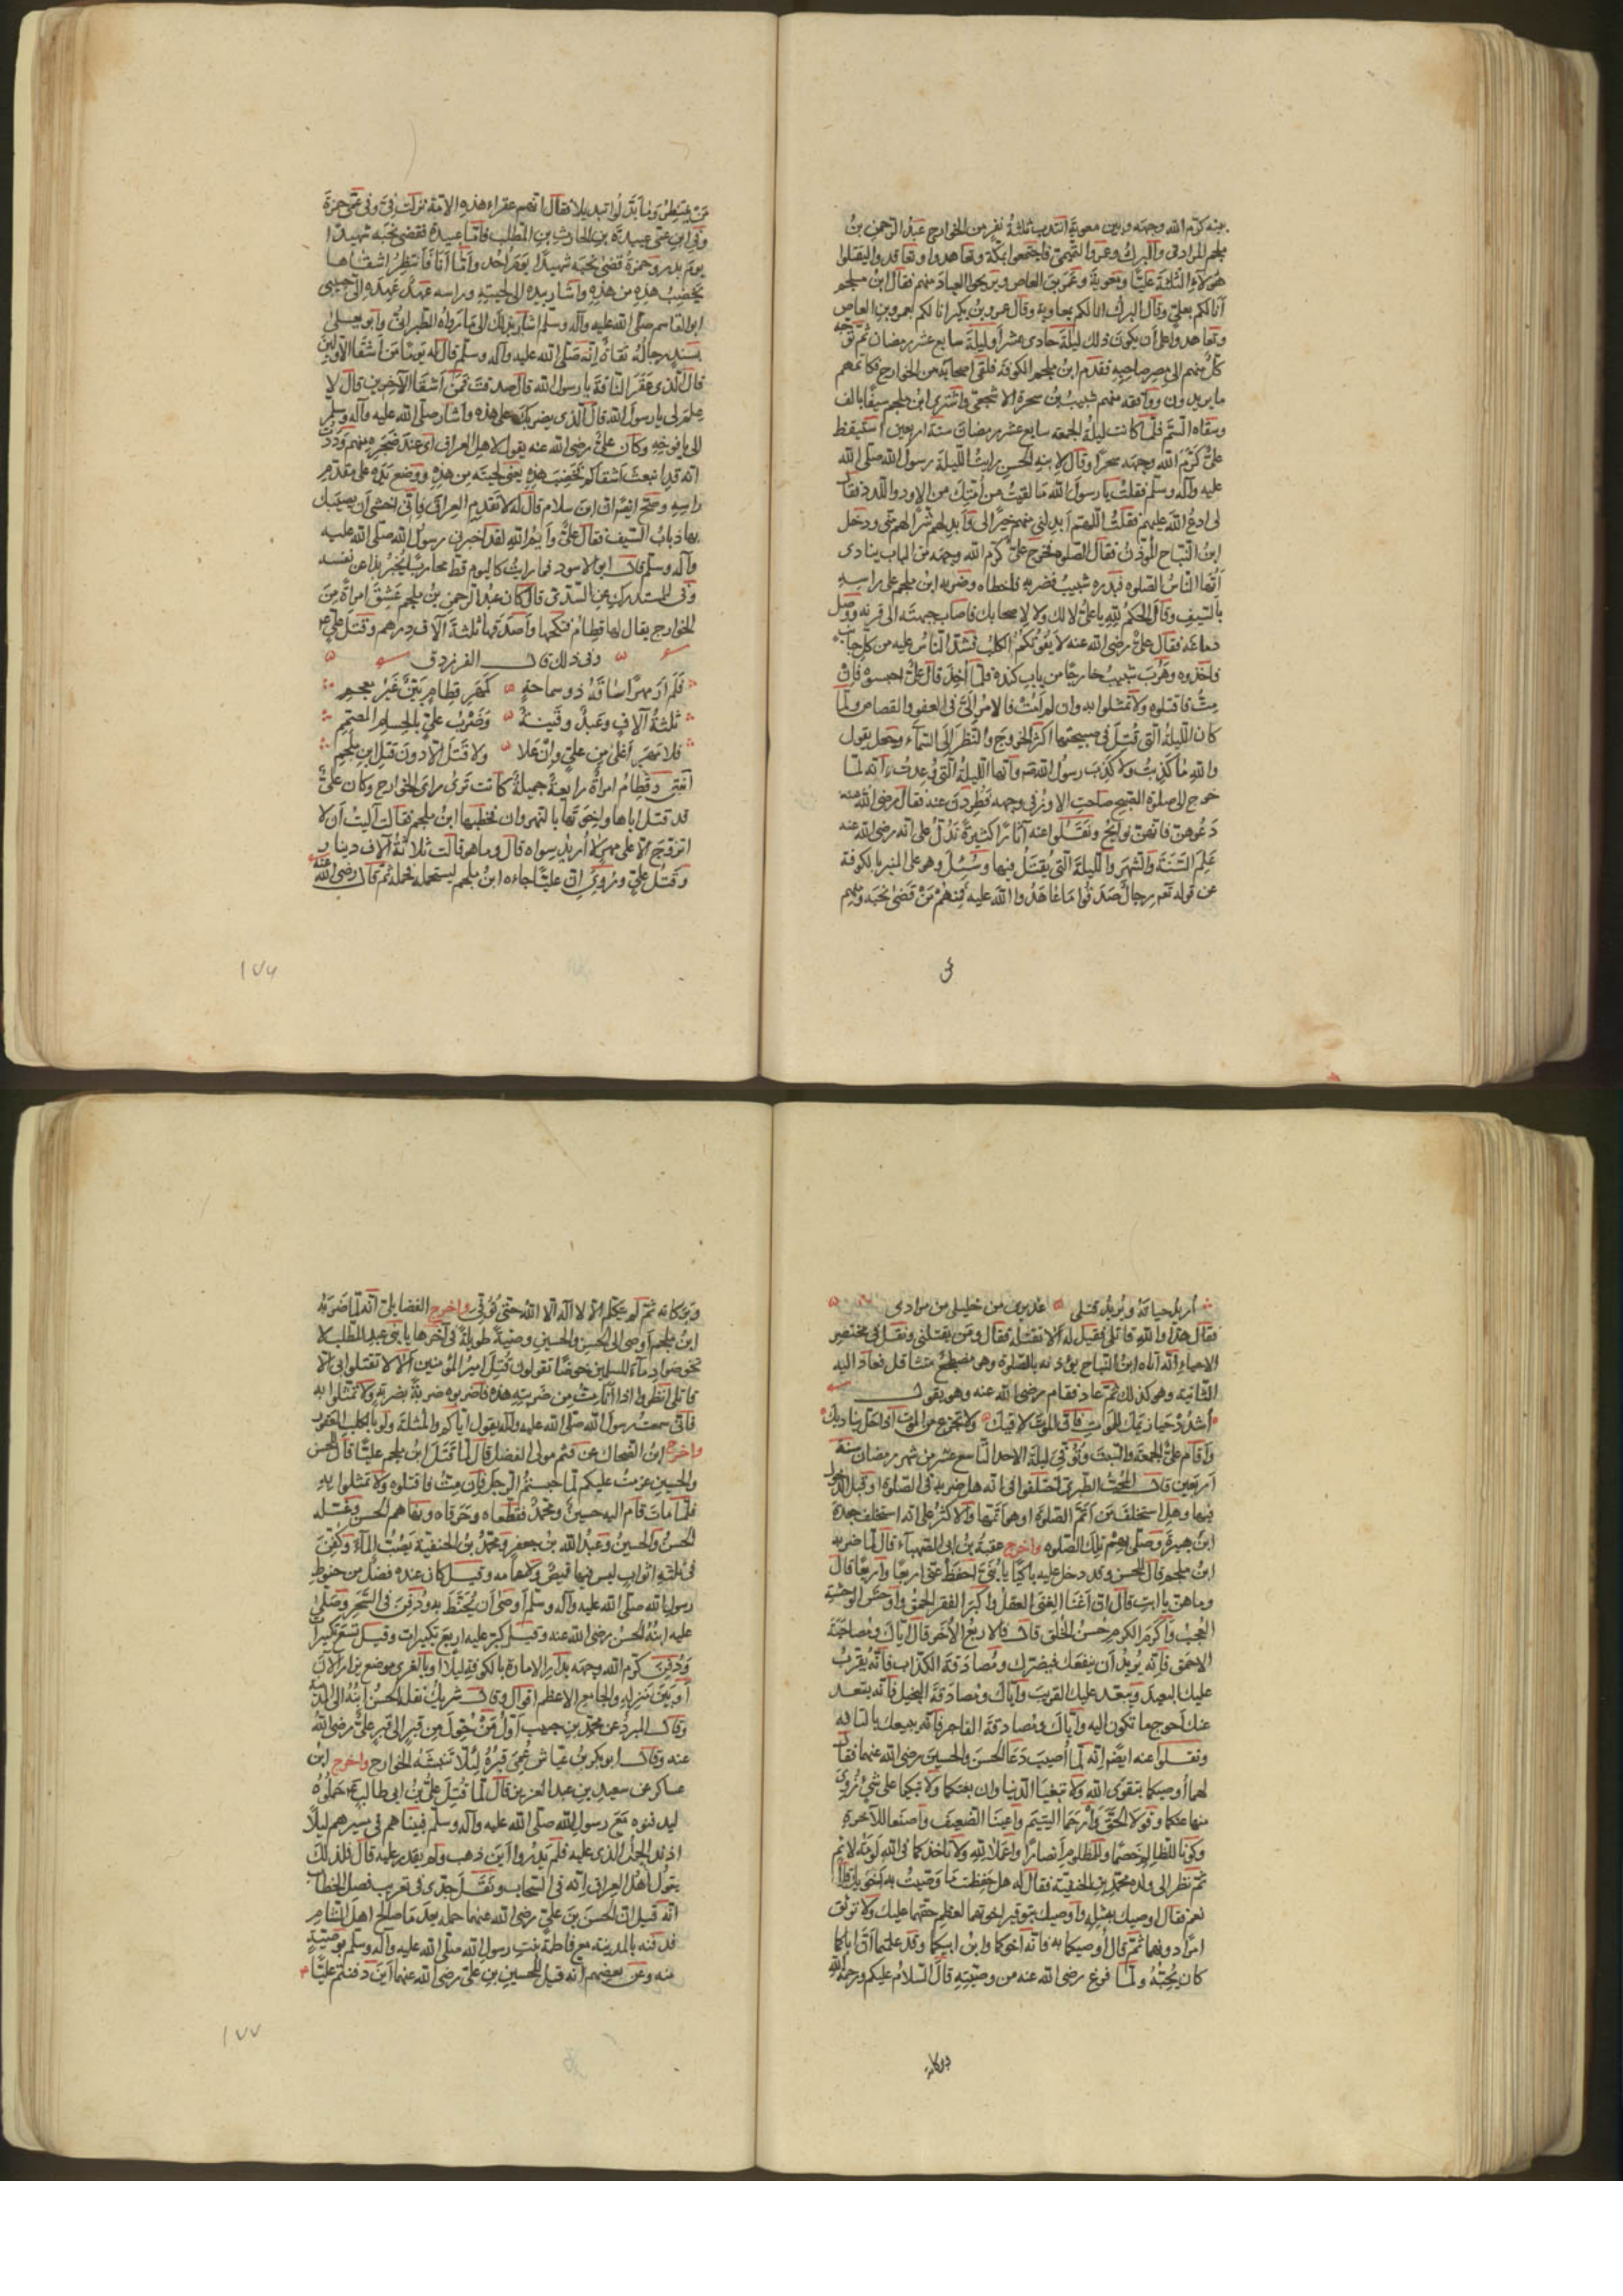 بينه كرّم الله وجهه وبين معوية انتدب ثلثة نفر من الخوارج عبد الرحمن بن
ملجم المرادى والبرك وعمرو التميمى فاجتمعوا بمكة وتعاهدوا وتعاقدوا ليقتلوا
هؤلاء الثلثة عليّا ومعوية وعمرو بن العاص ويريحوا العباد منهم فقال ابن ملجم
انا لكم بعلىّ وقال البرك انا لكم بمعاوية وقال عمرو بن بكير انا لكم بعمرو بن العاص
وتعاهدوا على أن يكون ذلك ليلة حادى عشر أو ليلة سابع عشر رمضان ثم توجّه
كلّ منهم الى مصر صاحبه فقدم ابن ملجم الكوفة فلقى اصحابه من الخوارج فكاتمهم
ما يريدون ووافقه منهم شبيب بن بجرة الاشجعى واشترى ابن ملجم سيفًا بالف
وسقاه السّمّ فلمّا كانت ليلة الجمعة سابع عشر رمضان سنة اربعين استيقظ
علىّ كرّم الله وجهه سحرًا وقال لابنه الحسن رايت الليلة رسول الله صلى الله
عليه وآله وسلم فقلت يا رسول الله ما لقيت من أمتك من الاود واللدد فقال
لى ادع الله عليهم فقلت اللهم أبدلنى منهم خيرًا لى وأبدلهم شرًّا لهم منّى ودخل
ابن النّباح المؤذن فقال الصلوة فخرج علىّ كرّم الله وجهه من الباب ينادى
أيّها الناس الصلوة فبدره شبيب فضربه فاخطاه وضربه ابن ملجم على راسه
بالسيف وقال الحكم لله يا علىّ لا لك ولا لاصحابك فاصاب جبهته الى قرنه ووصل
دماغه فقال علىّ رضى الله عنه لا يفوتنّكم الكلب فشدّ الناس عليه من كل جانب
فاخذوه وهرب شبيب خارجًا من باب كندة فلمّا أخذ قال علىّ احبسوه فان
متّ فاقتلوه ولا تمثلوا به وان لم أمت فالامر الىّ فى العفو والقصاص ولمّا
كان الليلة التى قتل فى صبيحتها اكثر الخروج والنظر الى السماء وجعل يقول
والله ما كذبت ولا كذب رسول الله وانها الليلة التى وعدت وانه لمّا
خرج لصلوة الصبح صاحت الاوز فى وجهه فطردن عنه فقال رضى الله عنه
دعوهنّ فانهنّ نوائح ونقلوا عنه آثارًا كثيرة تدلّ على انه رضى الله عنه
علم السنة والشهر والليلة التى يقتل فيها وسئل وهو على المنبر بالكوفة
عن قوله تعم رجال صدقوا ما عاهدوا الله عليه فمنهم من قضى نحبه ومنهم
من ينتظر وما بدّلوا تبديلا فقال اللهم غفرا هذه الاية نزلت فىّ وفى عمّى حمزة
وفى ابن عمّى عبيدة بن الحارث بن المطلب فامّا عبيدة فقضى نحبه شهيدًا
يوم بدر وحمزة قضى نحبه شهيدًا يوم احد وأمّا أنا فانتظر اشقاها
يخضب هذه من هذه واشار بيده الى لحيته وراسه عهد عهده الىّ حبيبى
ابو القاسم صلى الله عليه وآله وسلم اشار بذلك الى ما رواه الطبرانى وابو يعلى
بسند رجاله ثقاة انه صلى الله عليه وآله وسلم قال له يومًا من أشقا الاولين
قال الذى عقر الناقة يا رسول الله قال صدقت فمن أشقا الآخرين قال لا
علم لى يا رسول الله قال الذى يضربك على هذه واشار صلى الله عليه وآله وسلم
الى يافوخه وكان علىّ رضى الله عنه يقول لاهل العراق اى عند ضجره منهم وددت
انه قد انبعث أشقاكم فخضب هذه يعنى لحيته من هذه ووضع يده على مقدم
راسه وصحّ ايضًا ان ابن سلام قال له لا تقدم العراق فانى اخشى أن يصيبك
بها ذباب السيف فقال علىّ وايم الله لقد اخبرنى رسول الله صلى الله عليه
وآله وسلم قال ابو الاسود فما رايت كاليوم قط محاربًا يخبر بذا عن نفسه
وفى المستدرك عن السدّى قال كان عبد الرحمن بن ملجم عشق امراة من
الخوارج يقال لها قطام فنكحها وأصدقها ثلثة آلاف درهم وقتل علىّ
وفى ذلك قال الفرزدق
فلم ار مهرًا ساقه ذو سماحة كمهر قطام بيّن غير معجم
ثلثة آلاف وعبد وقينة وضرب علىّ بالحسام المصمّم
فلا مهر أغلى من علىّ وان غلا ولا قتل الا دون قتل ابن ملجم
انتهى وقطام امراة رايعة جميلة كانت ترى راى الخوارج وكان علىّ
قد قتل اباها واخوتها بالنهروان فخطبها ابن ملجم فقالت آليت أن لا
اتزوج الا على مهر لا أريد سواه قال وما هو قالت ثلاثة آلاف دينار
وقتل علىّ وروى ان عليّا جاءه ابن ملجم يستحمله فحمله ثم قال رضى الله عنه
١٧٦
أريد حياته ويريد قتلى عذيرى من خليلى من مرادى
فقال هذا والله قاتلى فقيل له ألا تقتله فقال ومن يقتلنى ونقل فى مختصر
الاحياء انه أتاه ابن النّباح يؤذنه بالصلوة وهو مضطجع متثاقل فعاد اليه
الثانية وهو كذلك ثم عاد فقام رضى الله عنه وهو يقول
أشدد حيازيمك للموت فان الموت لاقيك ولا تجزع من الموت اذا حلّ بناديك
وأقام علىّ الجمعة والسبت وتوفى ليلة الاحد التاسع عشر من شهر رمضان سنة
أربعين قال المحبّ الطبرى اختلفوا فى انه هل ضربه فى الصلوة او قبل الدخول
فيها وهل استخلف من أتمّ الصلوة او هو أتمّها والاكثر على انه استخلف جعدة
ابن هبيرة وصلّى بهم تلك الصلوة واخرج عقبة بن ابى الصهباء قال لمّا ضربه
ابن ملجم قال للحسن وقد دخل عليه باكيًا يا بنىّ احفظ عنّى اربعًا واربعًا قال
وما هن يا ابت قال ان أغنا الغنى العقل واكبر الفقر الحمق واوحش الوحشة
العجب وأكرم الكرم حسن الخلق قال فالاربع الأخر قال ايّاك ومصاحبة
الاحمق فانه يريد أن ينفعك فيضرك ومصادقة الكذاب فانه يقرب
عليك البعيد ويبعد عليك القريب وايّاك ومصادقة البخيل فانه يبعد
عنك أحوج ما تكون اليه وايّاك ومصادقة الفاجر فانه يبيعك بالتافه
ونقلوا عنه ايضًا انه لمّا أصيب دعا الحسن والحسين رضى الله عنهما فقال
لهما أوصيكما بتقوى الله ولا تبغيا الدنيا وان بغتكما ولا تبكيا على شىء زوى
منها عنكما وقولا الحقّ وارحما اليتيم واعينا الضعيف واصنعا للآخرة
وكونا للظالم خصمًا وللمظلوم انصارًا واعملا لله ولا تاخذكما فى الله لومة لائم
ثم نظر الى ولده محمد بن الحنفية فقال له هل حفظت ما وصّيت به أخويك قال
نعم فقال اوصيك بمثله وأوصيك بتوقير اخويك لعظم حقهما عليك ولا توثق
امرًا دونهما ثم قال أوصيكما به فانه اخوكما وابن ابيكما وقد علمتما أنّ اباكما
كان يحبّه ولمّا فرغ رضى الله عنه من وصيّته قال السلام عليكم ورحمة الله
وبركاته
وبركاته ثم لم يتكلم الا لا اله الا الله حتى توفى واخرج الفضايلى انه لمّا ضربه
ابن ملجم أوصى الى الحسن والحسين وصيّة طويلة فى آخرها يا بنى عبد المطلب لا
تخوضوا دماء المسلمين خوضًا تقولون قتل امير المؤمنين ألا لا تقتلوا بى الا
قاتلى انظروا اذا أنا متّ من ضربته هذه فاضربوه ضربة بضربة ولا تمثلوا به
فانى سمعت رسول الله صلى الله عليه وآله يقول ايّاكم والمثلة ولو بالكلب العقور
واخرج ابن الضحاك عن قثم مولى الفضل قال لمّا قتل ابن ملجم عليّا قال للحسن
والحسين عزمت عليكم لمّا حبستم الرجل فان متّ فاقتلوه ولا تمثلوا به
فلمّا مات قام اليه حسين ومحمد فقطعاه وحرقاه ونهاهم الحسن وغسله
الحسن والحسين وعبد الله بن جعفر ومحمد بن الحنفية يصبّ الماء وكفن
فى ثلثة اثواب ليس فيها قميص ولا عمامه وقيل كان عنده فضل من حنوط
رسول الله صلى الله عليه وآله وسلم أوصى أن يحنّط به ودفن فى السحر وصلّى
عليه ابنه الحسن رضى الله عنه وقيل كبّر عليه اربع تكبيرات وقيل تسع تكبيرا
ودفن كرّم الله وجهه بدار الامارة بالكوفة ليلا او بالغرى موضع يزار الآن
أو بين منزله والجامع الاعظم اقوال وقال شريك نقله الحسن ابنه الى المدينة
وقال المبرد عن محمد بن حبيب أوّل من حوّل من قبر الى قبر علىّ رضى الله
عنه وقال ابو بكر بن عيّاش عمّى قبره لئلا تنبشه الخوارج واخرج ابن
عساكر عن سعيد بن عبد العزيز قال لمّا قتل علىّ بن ابى طالب حملوه
ليدفنوه مع رسول الله صلى الله عليه وآله وسلم فبيناهم فى سيرهم ليلًا
اذ ندّ الجمل الذى عليه فلم يدروا أين ذهب ولم يقدر عليه قال فلذلك
يقول أهل العراق انه فى السحاب ونقل جدّى فى تعريب فصل الخطاب
انه قيل ان الحسن بن علىّ رضى الله عنهما حمله بعد ما صالح اهل الشام
فدفنه بالمدينة مع فاطمة بنت رسول الله صلى الله عليه وآله وسلم بوصيّة
منه وعن بعضهم انه قيل للحسين بن على رضى الله عنهما أين دفنتم عليّا
١٧٧